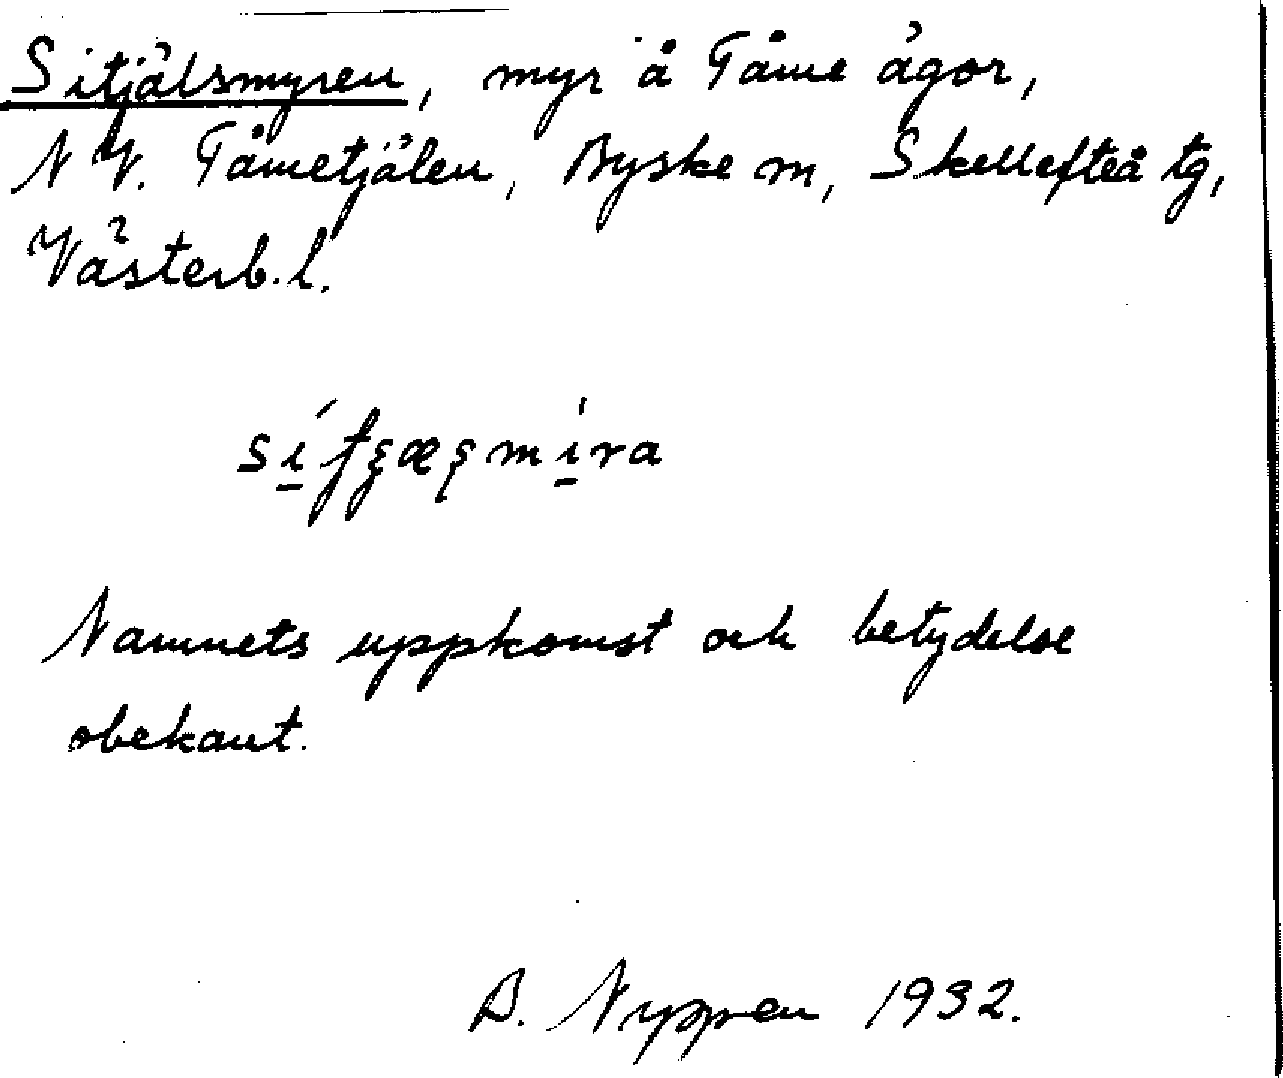 Sitjälsmyren, myr å Tåme ägor,
N V. Tåmetjälen, Byske sn, Skellefteå tg,
Västerb. l.
Namnets uppkomst och betydelse
obekant.
B. Nyppen 1932.